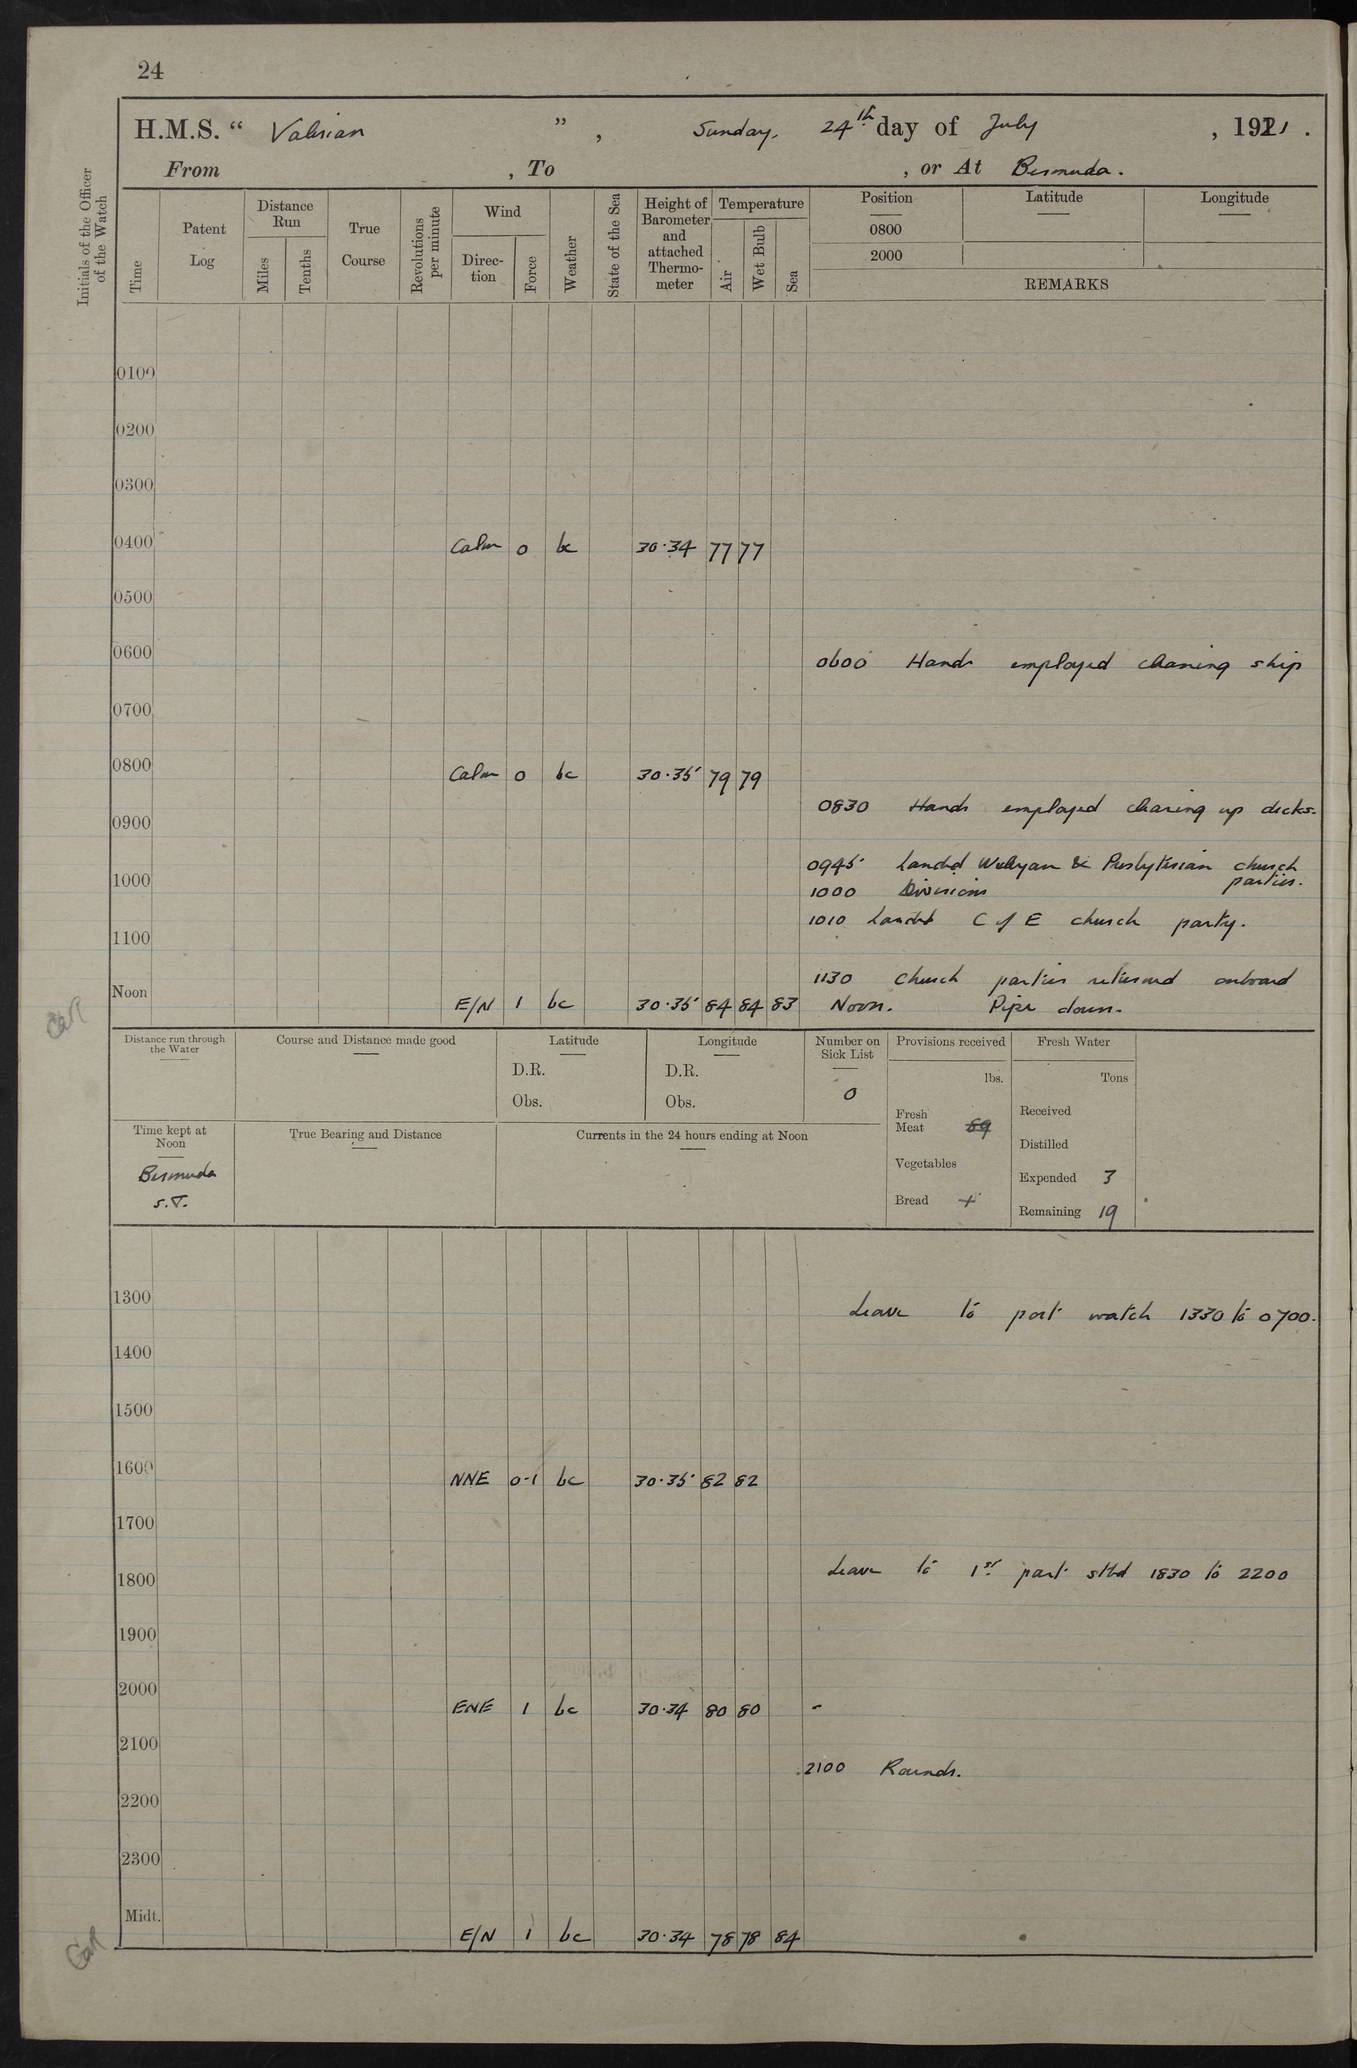 24
H.M.S. “ Valerian ” , Sunday, 24th day of July , 1921 .
From , To , or At Bermuda.
Initials of the Officer of the Watch
Time
Patent Log
Distance Run
Miles
Tenths
True Course
Revolutions per minute
Wind
Direction
Force
Weather
State of the Sea
Height of Barometer and attached Thermometer
Temperature
Air
Wet Bulb
Sea
Position Latitude Longitude
0800
2000
REMARKS
0100
0200
0300
0400 Calm 0 bc 30.34 77 77
0500
0600
0600 Hands employed cleaning ship
0700
0800 Calm 0 bc 30.35 79 79
0830 Hands employed clearing up decks.
0900
0945 Landed Weslyan & Presbyterian church parties.
1000
1000 Divisions
1010 Landed C of E church party.
1100
1130 Church parties returned onboard
Noon E/N 1 bc 30.35 84 84 83 Noon. Pipe down.
Distance run through the Water
Course and Distance made good
Latitude
D.R.
Obs.
Longitude
D.R.
Obs.
Number on Sick List
0
Provisions received
lbs.
Fresh Meat 69
Vegetables
Bread +
Fresh Water
Tons
Received
Distilled
Expended 3
Remaining 19
Time kept at Noon
Bermuda
S.T.
True Bearing and Distance
Currents in the 24 hours ending at Noon
1300
Leave to port watch 1330 to 0700.
1400
1500
1600 NNE 0-1 bc 30.35 82 82
1700
Leave to 1st part stbd 1830 to 2200
1800
1900
2000 ENE 1 bc 30.34 80 80 -
2100
2100 Rounds.
2200
2300
Midt. E/N 1 bc 30.34 78 78 84